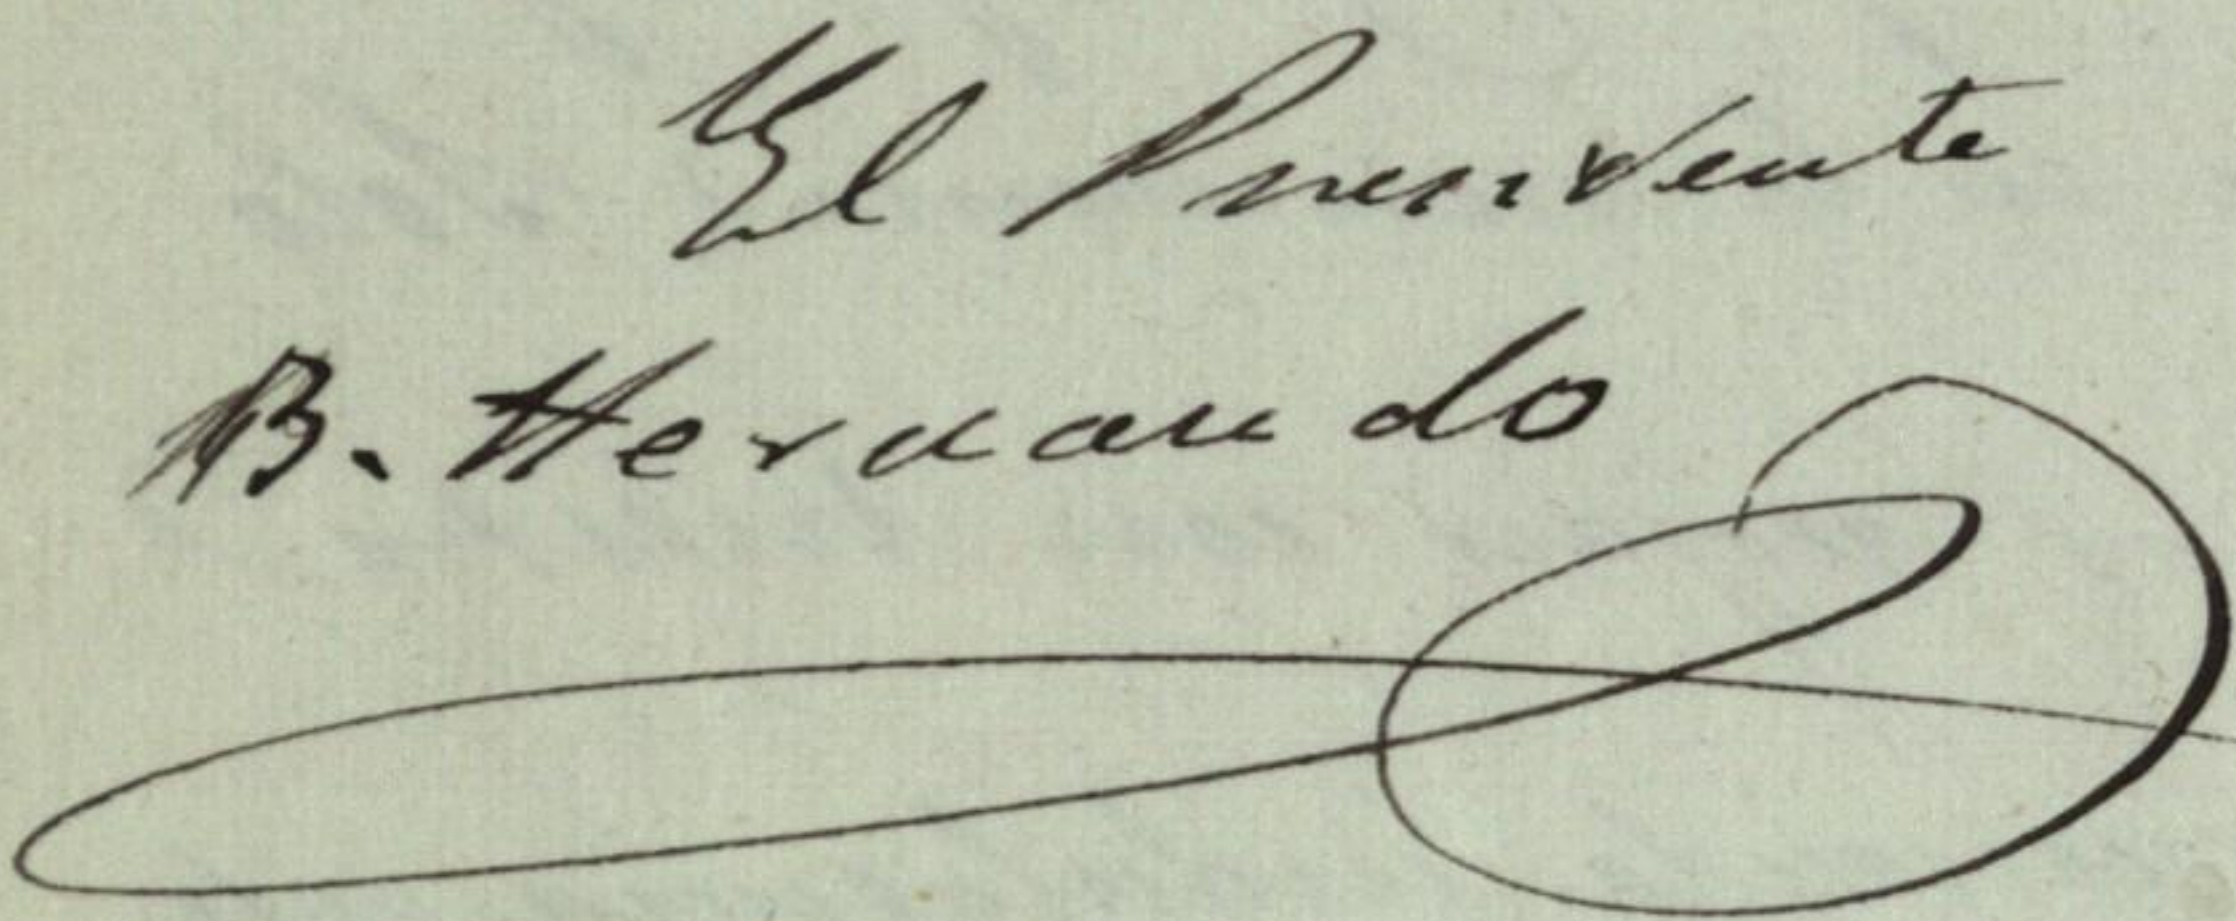 El Presidente
B. Hernando